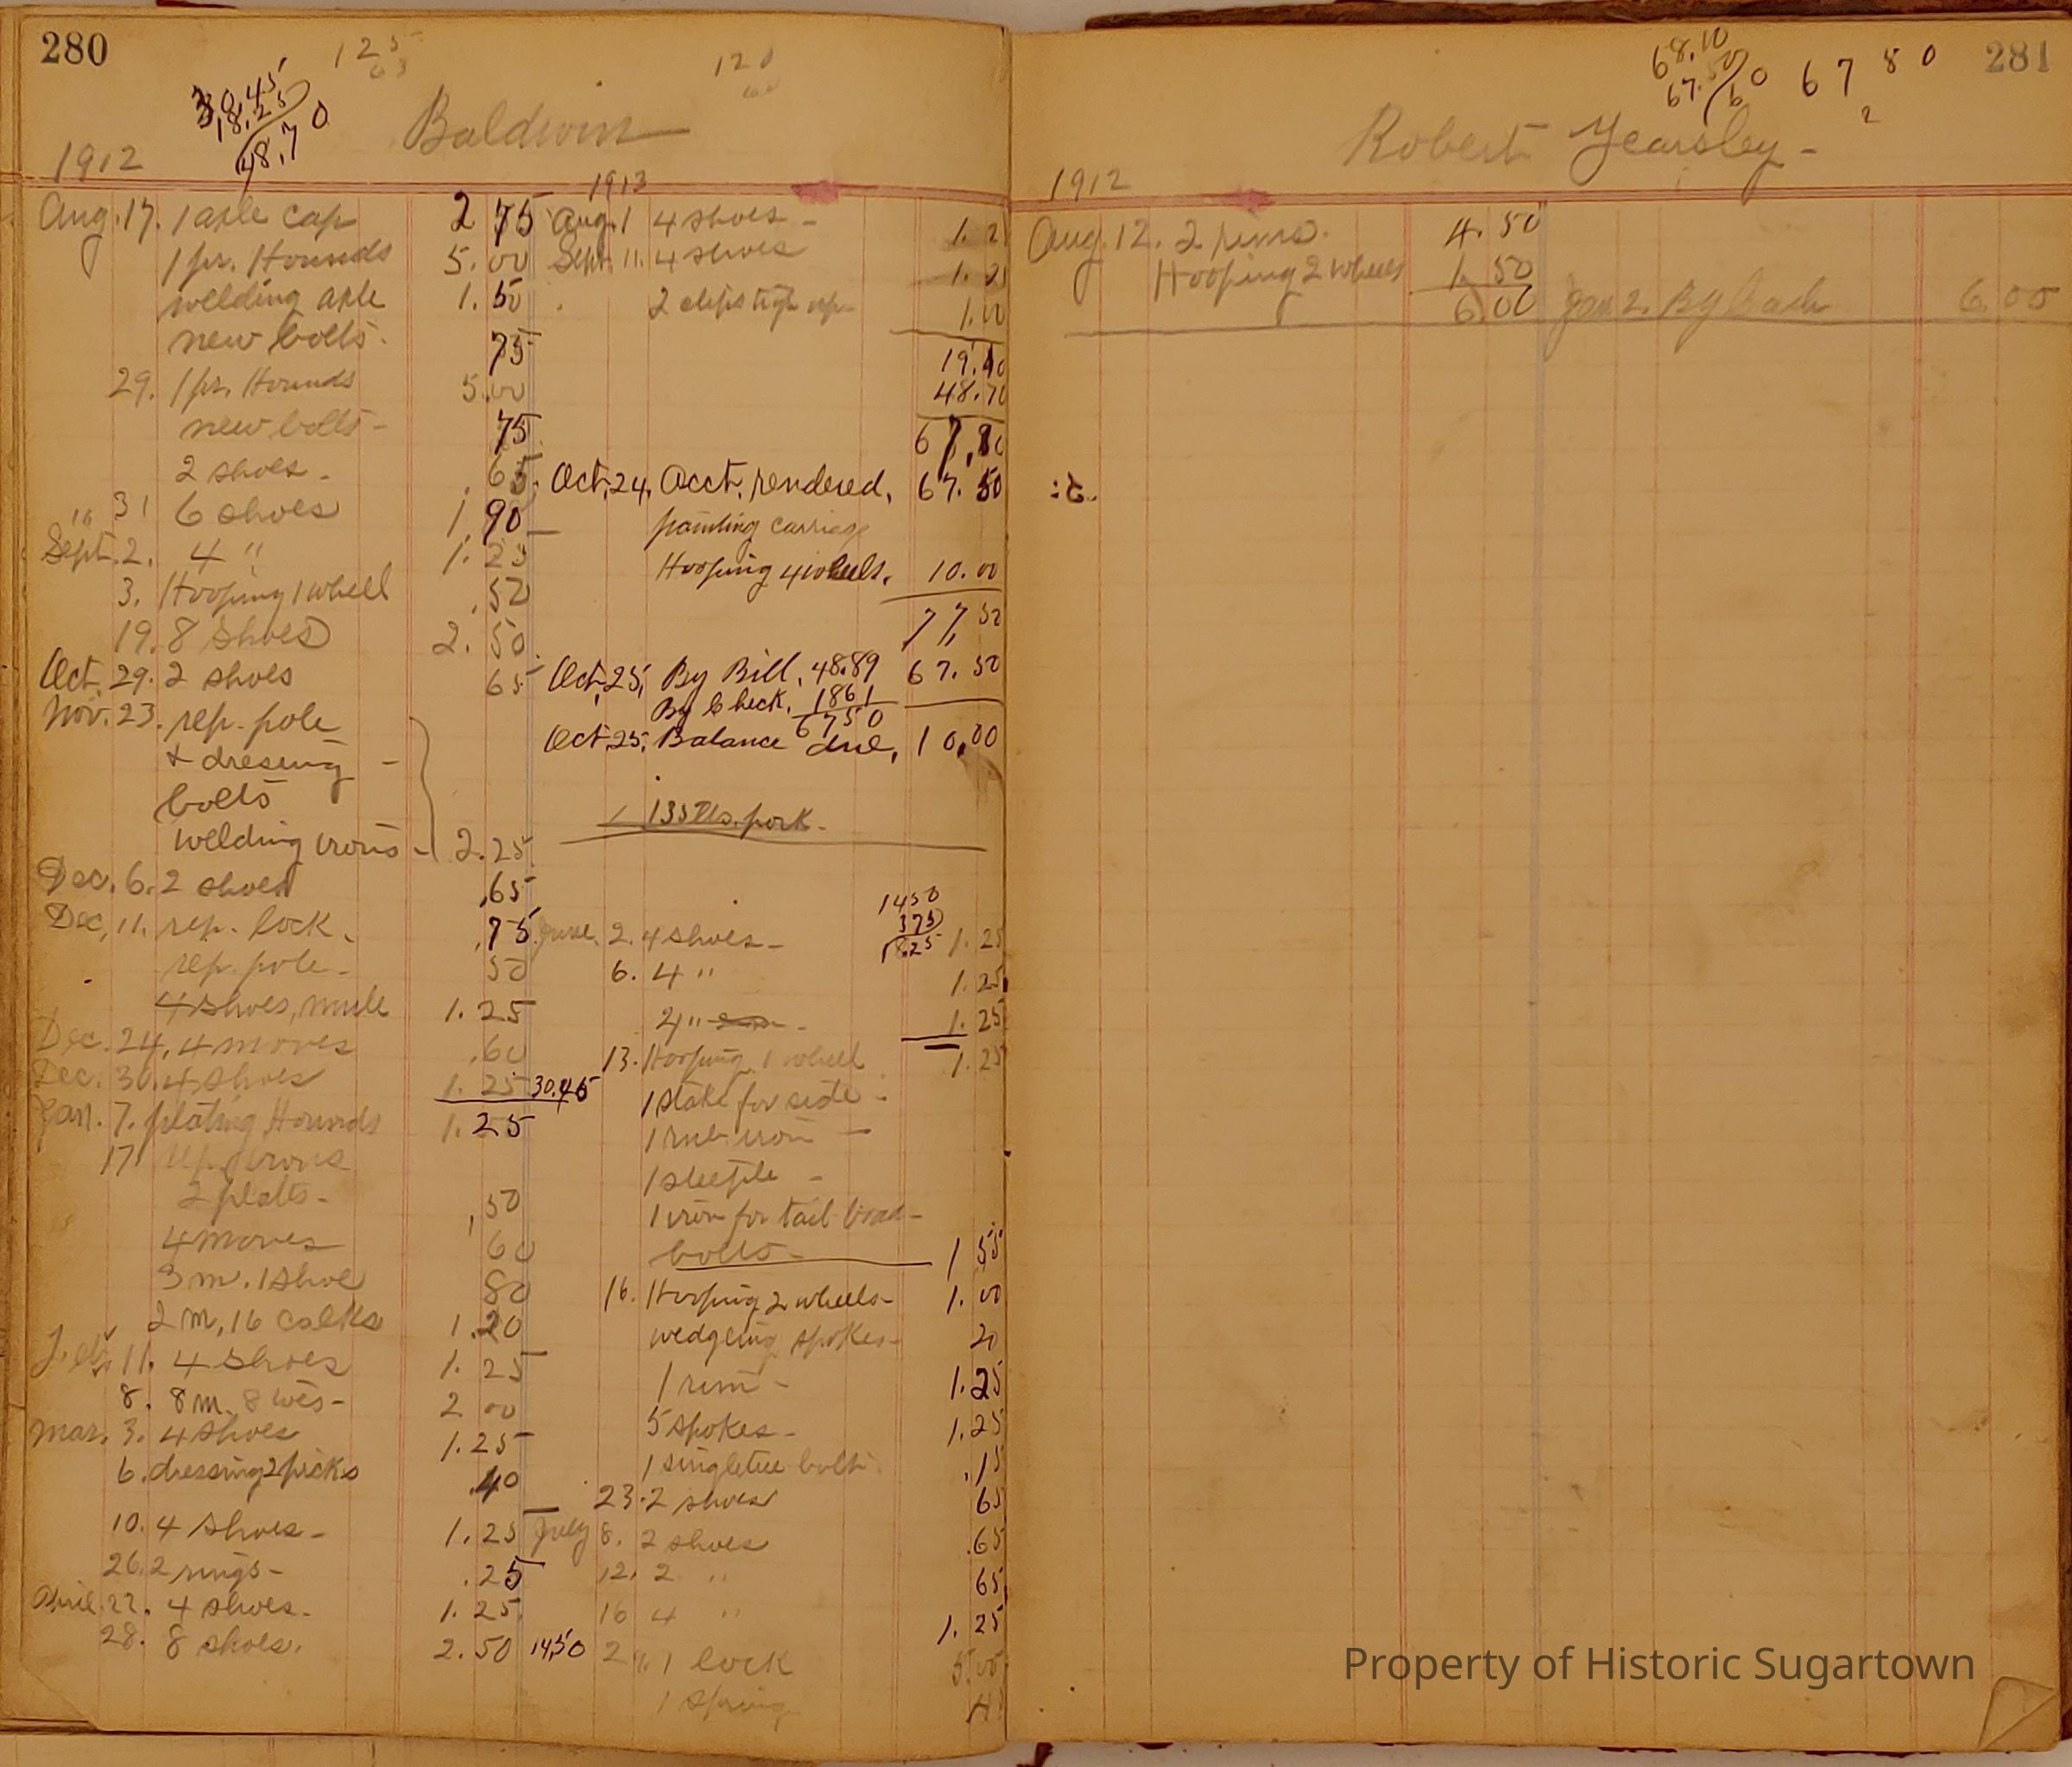 280
125
63
120
60
30.45
18.25
48.70
Baldwin
1912
Aug. 17. 1 axle cap 2 75
1 pr. Hounds 5.00
welding axle 1.50
new bolts. 75
29. 1 pr. Hounds 5.00
new bolts - 75
2 shoes - .65
31 6 shoes 1.90
16
Sept. 2. 4 " 1.25
3. Hooping 1 wheel .50
19. 8 shoes 2.50
Oct. 29. 2 shoes 65
Nov. 23. rep. pole
& dressing -
bolts
welding irons - 2.25
Dec. 6. 2 shoes .65
Dec. 11. rep. lock. .75
rep. pole - 50
4 shoes, mule 1.25
Dec. 24. 4 moves .60
Dec. 30. 4 shoes 1.25 30.45
Jan. 7. plating Hounds 1.25
17 rep. irons
2 plates - .50
4 moves 60
3 m. 1 shoe 80
2 m, 16 calks 1.20
Feb. 11. 4 shoes 1.25
8. 8 m. 2 00
Mar. 3. 4 shoes 1.25
6. dressing 2 picks .40
10. 4 shoes - 1.25
26. 2 rings - .25
April 22. 4 shoes. 1.25
28. 8 shoes. 2.50 14.50
1913
Aug. 1 4 shoes - 1.2
Sept. 11. 4 shoes 1.2
2 clips 1.00
19.10
48.70
67.80
Oct. 24. Acct. rendered, 67.50
painting carriage
Hooping 4 wheels. 10.00
77.50
Oct. 25, By Bill, 48.89 67.50
By Check, 1861
6750
Oct. 25, Balance due, 10.00
135 lbs. pork -
1450
375
1825
June. 2. 4 shoes - 1.25
6. 4 " 1.25
4 " 1.25
13. Hooping 1 wheel 1.25
1 stake for side -
1 rub iron -
1 steeple -
1 iron for tail board -
bolts - 1 55
16. Hooping 2 wheels - 1.00
wedgeing spokes - 20
1 rim - 1.25
5 spokes - 1.25
1 singletree bolt. .15
23. 2 shoes 65
July 8. 2 shoes .65
12. 2 " 65
16 4 " 1.25
1 lock 5.00
1 spring
281
68.10
67.50
60
67 80
2
Robert Yearsley -
1912
Aug. 12. 2 rims. 4.50
Hooping 2 wheels 1.50
6.00 Jan 2. By Cash 6.00
Property of Historic Sugartown